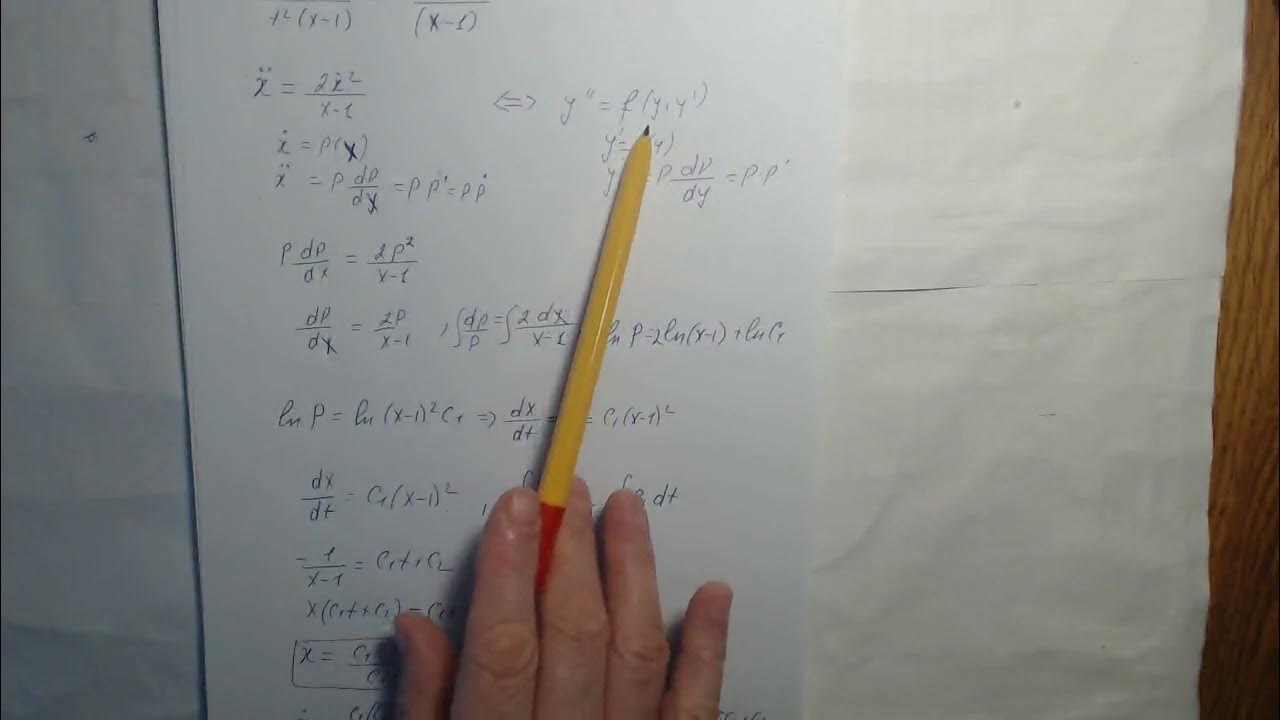 t²(x-1) (x-1)
ẍ = 2ẋ²/(x-1) <=> y'' = f(y,y')
ẋ = P(x) y' = (y)
ẍ = P dP/dx = P P' = P Ṗ = P dP/dy = P P'
P dP/dx = 2P²/(x-1)
dP/dx = 2P/(x-1) , ∫dP/P = ∫2dx/(x-1) ln P = 2ln(x-1) + ln C₁
ln P = ln (x-1)² C₁ => dx/dt = = C₁(x-1)²
dx/dt = C₁(x-1)² , dt
-1/(x-1) = C₁t + C₂
x(C₁t + C₂) = C₁t
x = C₁